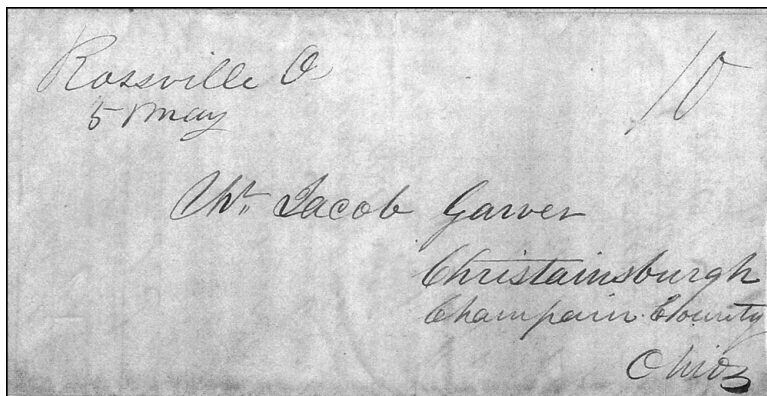 Rossville O
10
5 May
Mr. Jacob Garver
Christainsburgh
Champain County
Ohio